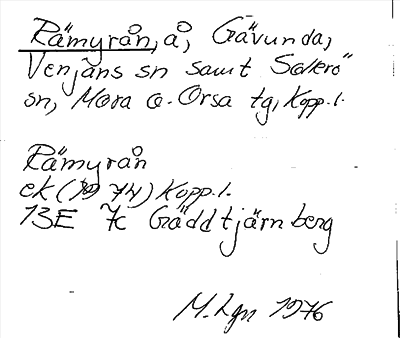 Rämyrån, å, Gävunda,
Venjans sn samt Sollerö
sn, Mora o. Orsa tg, Kopp. l.
Rämyrån
ek (1974) Kopp. l.
13E 7c Gäddtjärnberg
M. Lgn 1976